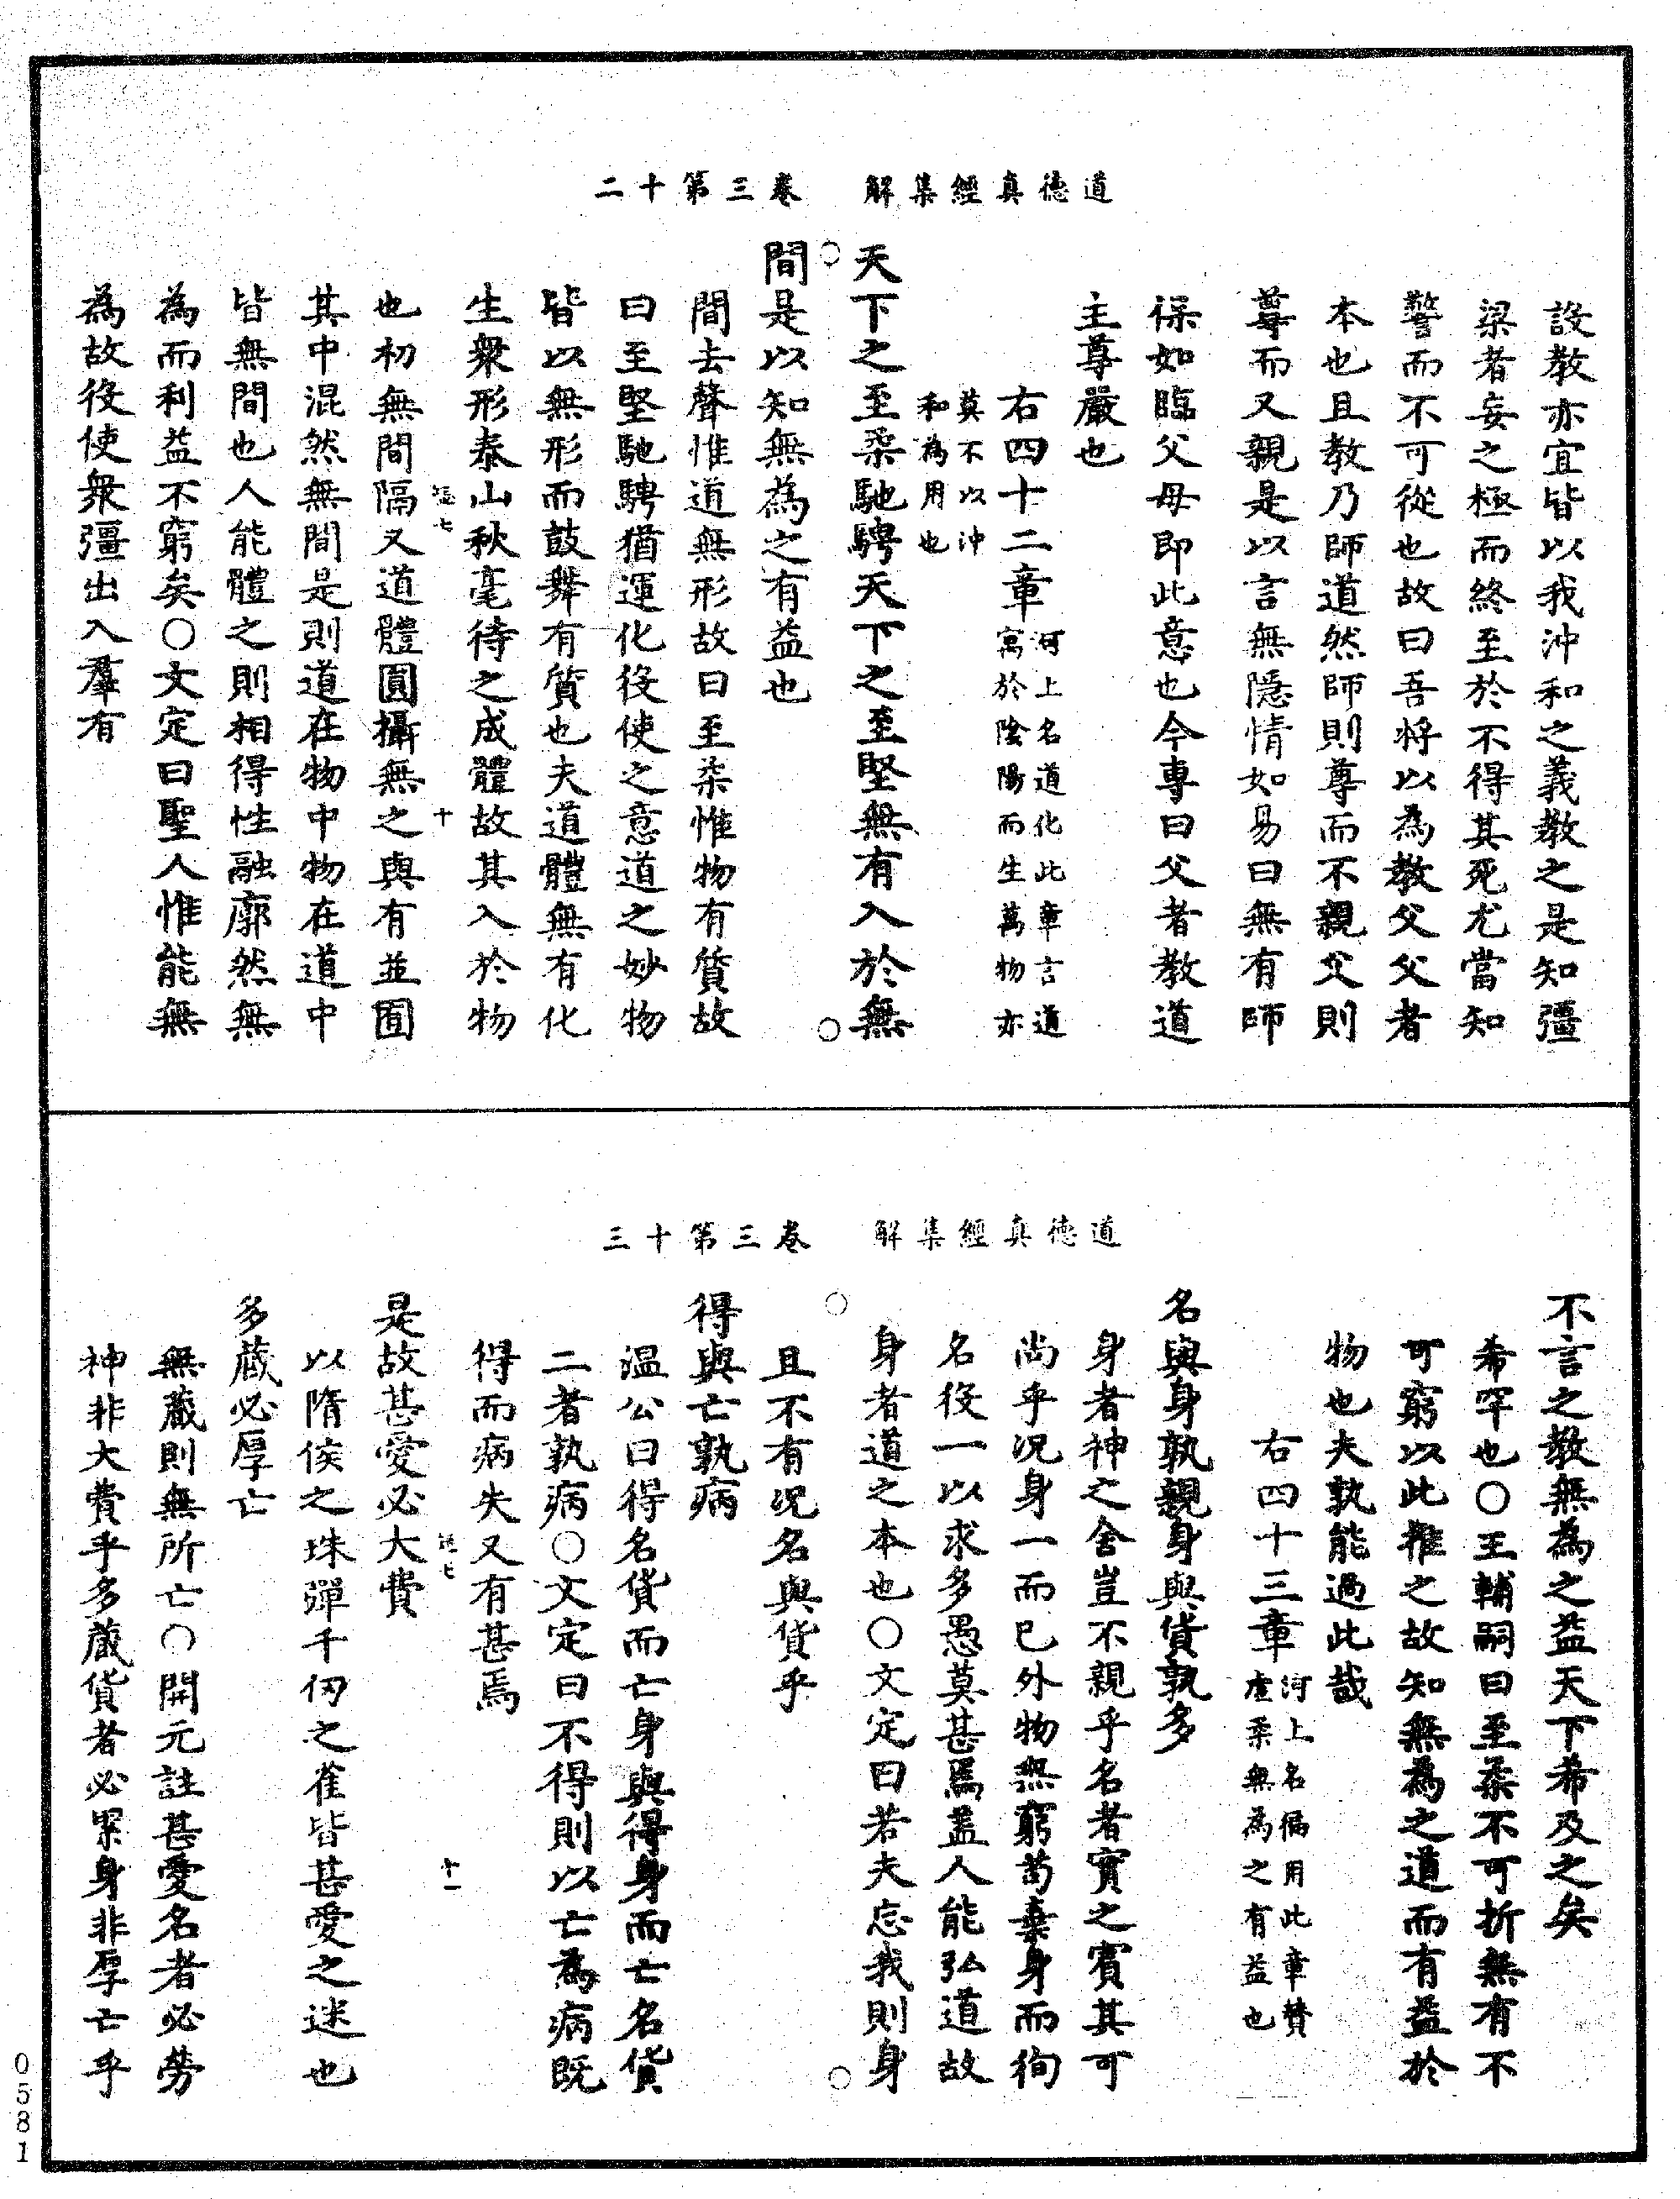 道德真經集解　卷三第十二
設教亦宜皆以我沖和之義教之是知彊
梁者妄之極而終至於不得其死尤當知
警而不可從也故曰吾將以為教父父者
本也且教乃師道然師則尊而不親父則
尊而又親是以言無隱情如易曰無有師
保如臨父母即此意也今專曰父者教道
主尊嚴也
右四十二章河上名道化此章言道
寓於陰陽而生萬物亦
莫不以沖
和為用也
天下之至柔馳騁天下之至堅無有入於無
間是以知無為之有益也
間去聲惟道無形故曰至柔惟物有質故
曰至堅馳騁猶運化役使之意道之妙物
皆以無形而鼓舞有質也夫道體無有化
生衆形泰山秋毫待之成體故其入於物
也初無間隔又道體圓攝無之與有並囿
其中混然無間是則道在物中物在道中
皆無間也人能體之則相得性融廓然無
為而利益不窮矣○文定曰聖人惟能無
為故役使衆彊出入羣有
十
道德真經集解　卷三第十三
不言之教無為之益天下希及之矣
希罕也○王輔嗣曰至柔不可折無有不
可窮以此推之故知無為之道而有益於
物也夫孰能過此哉
右四十三章河上名徧用此章賛
虛柔無為之有益也
名與身孰親身與貨孰多
身者神之舍豈不親乎名者實之賓其可
尚乎况身一而已外物無窮苟棄身而徇
名役一以求多愚莫甚焉盖人能弘道故
身者道之本也○文定曰若夫忘我則身
且不有况名與貨乎
得與亡孰病
溫公曰得名貨而亡身與得身而亡名貨
二者孰病○文定曰不得則以亡為病既
得而病失又有甚焉
是故甚愛必大費
以隋侯之珠彈千仞之雀皆甚愛之迷也
多藏必厚亡
無藏則無所亡○開元註甚愛名者必勞
神非大費乎多藏貨者必累身非厚亡乎
十一
0581